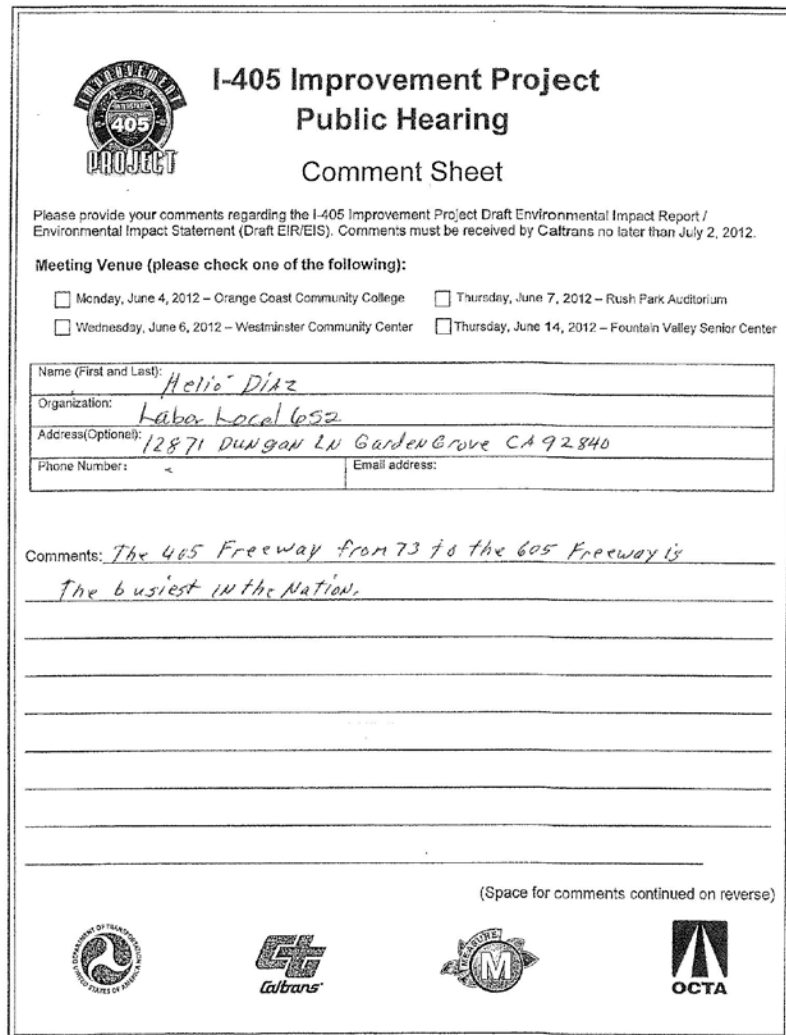 IMPROVEMENT
INTERSTATE
405
PROJECT
I-405 Improvement Project
Public Hearing
Comment Sheet
Please provide your comments regarding the I-405 Improvement Project Draft Environmental Impact Report /
Environmental Impact Statement (Draft EIR/EIS). Comments must be received by Caltrans no later than July 2, 2012.
Meeting Venue (please check one of the following):
Monday, June 4, 2012 – Orange Coast Community College
Thursday, June 7, 2012 – Rush Park Auditorium
Wednesday, June 6, 2012 – Westminster Community Center
Thursday, June 14, 2012 – Fountain Valley Senior Center
Name (First and Last): Helio Diaz
Organization: Labor Local 652
Address(Optional): 12871 Dungan LN Garden Grove CA 92840
Phone Number:
Email address:
Comments: The 405 Freeway from 73 to the 605 Freeway is
The busiest in the Nation.
(Space for comments continued on reverse)
DEPARTMENT OF TRANSPORTATION
UNITED STATES OF AMERICA
Caltrans
MEASURE
M
OCTA